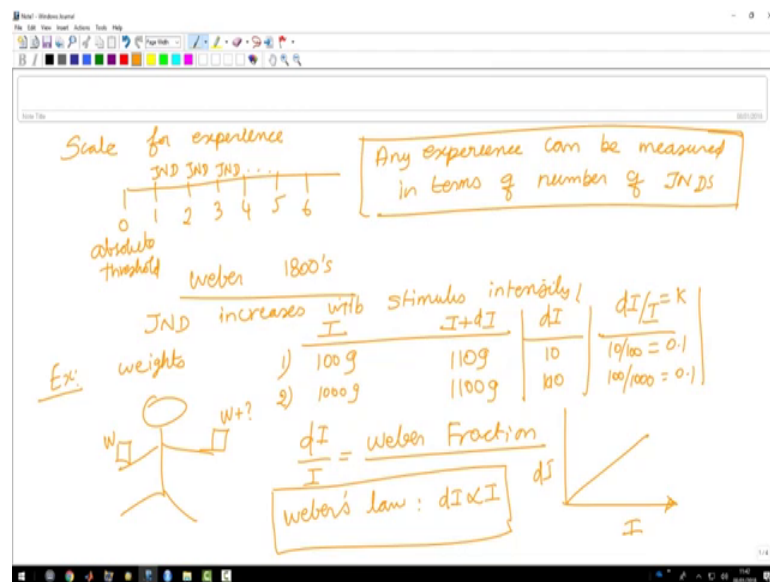 Note1 - Windows Journal
File Edit View Insert Actions Tools Help
Page Width
B I
Note Title
Scale for experience
JND JND JND ...
0 1 2 3 4 5 6
absolute
threshold
Any experience can be measured
in terms of number of JNDs
Weber 1800's
JND increases with stimulus intensity
I I+dI dI dI/I = K
Ex: weights 1) 100g 110g 10 10/100 = 0.1
2) 1000g 1100g 100 100/1000 = 0.1
W W+?
dI/I = Weber Fraction
Weber's law: dI ∝ I
dI
I
1/4
11:42